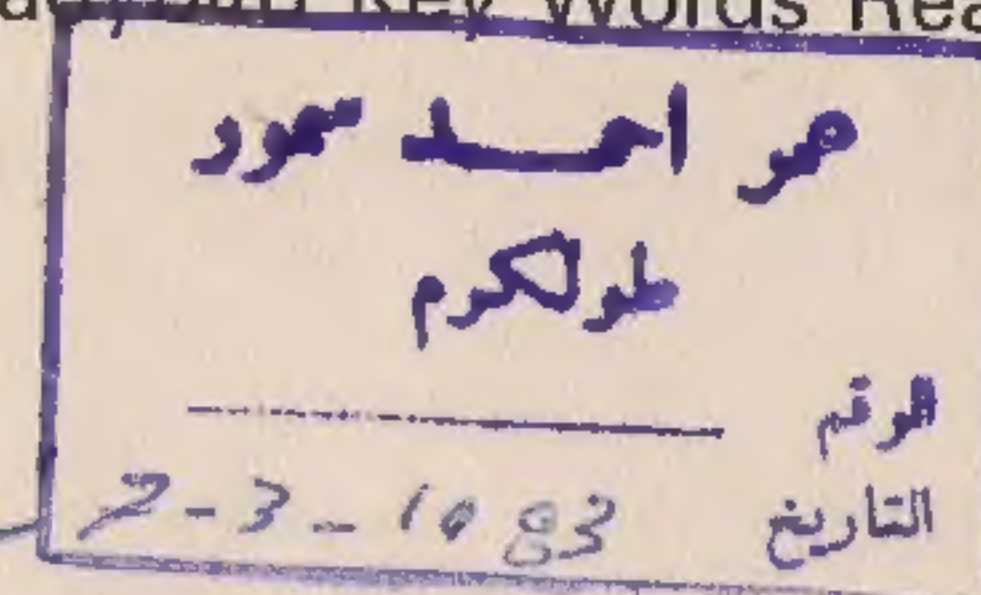 Key Words Rea
عمر احمد
طولكرم
الرقم
التاريخ 2-3-1983